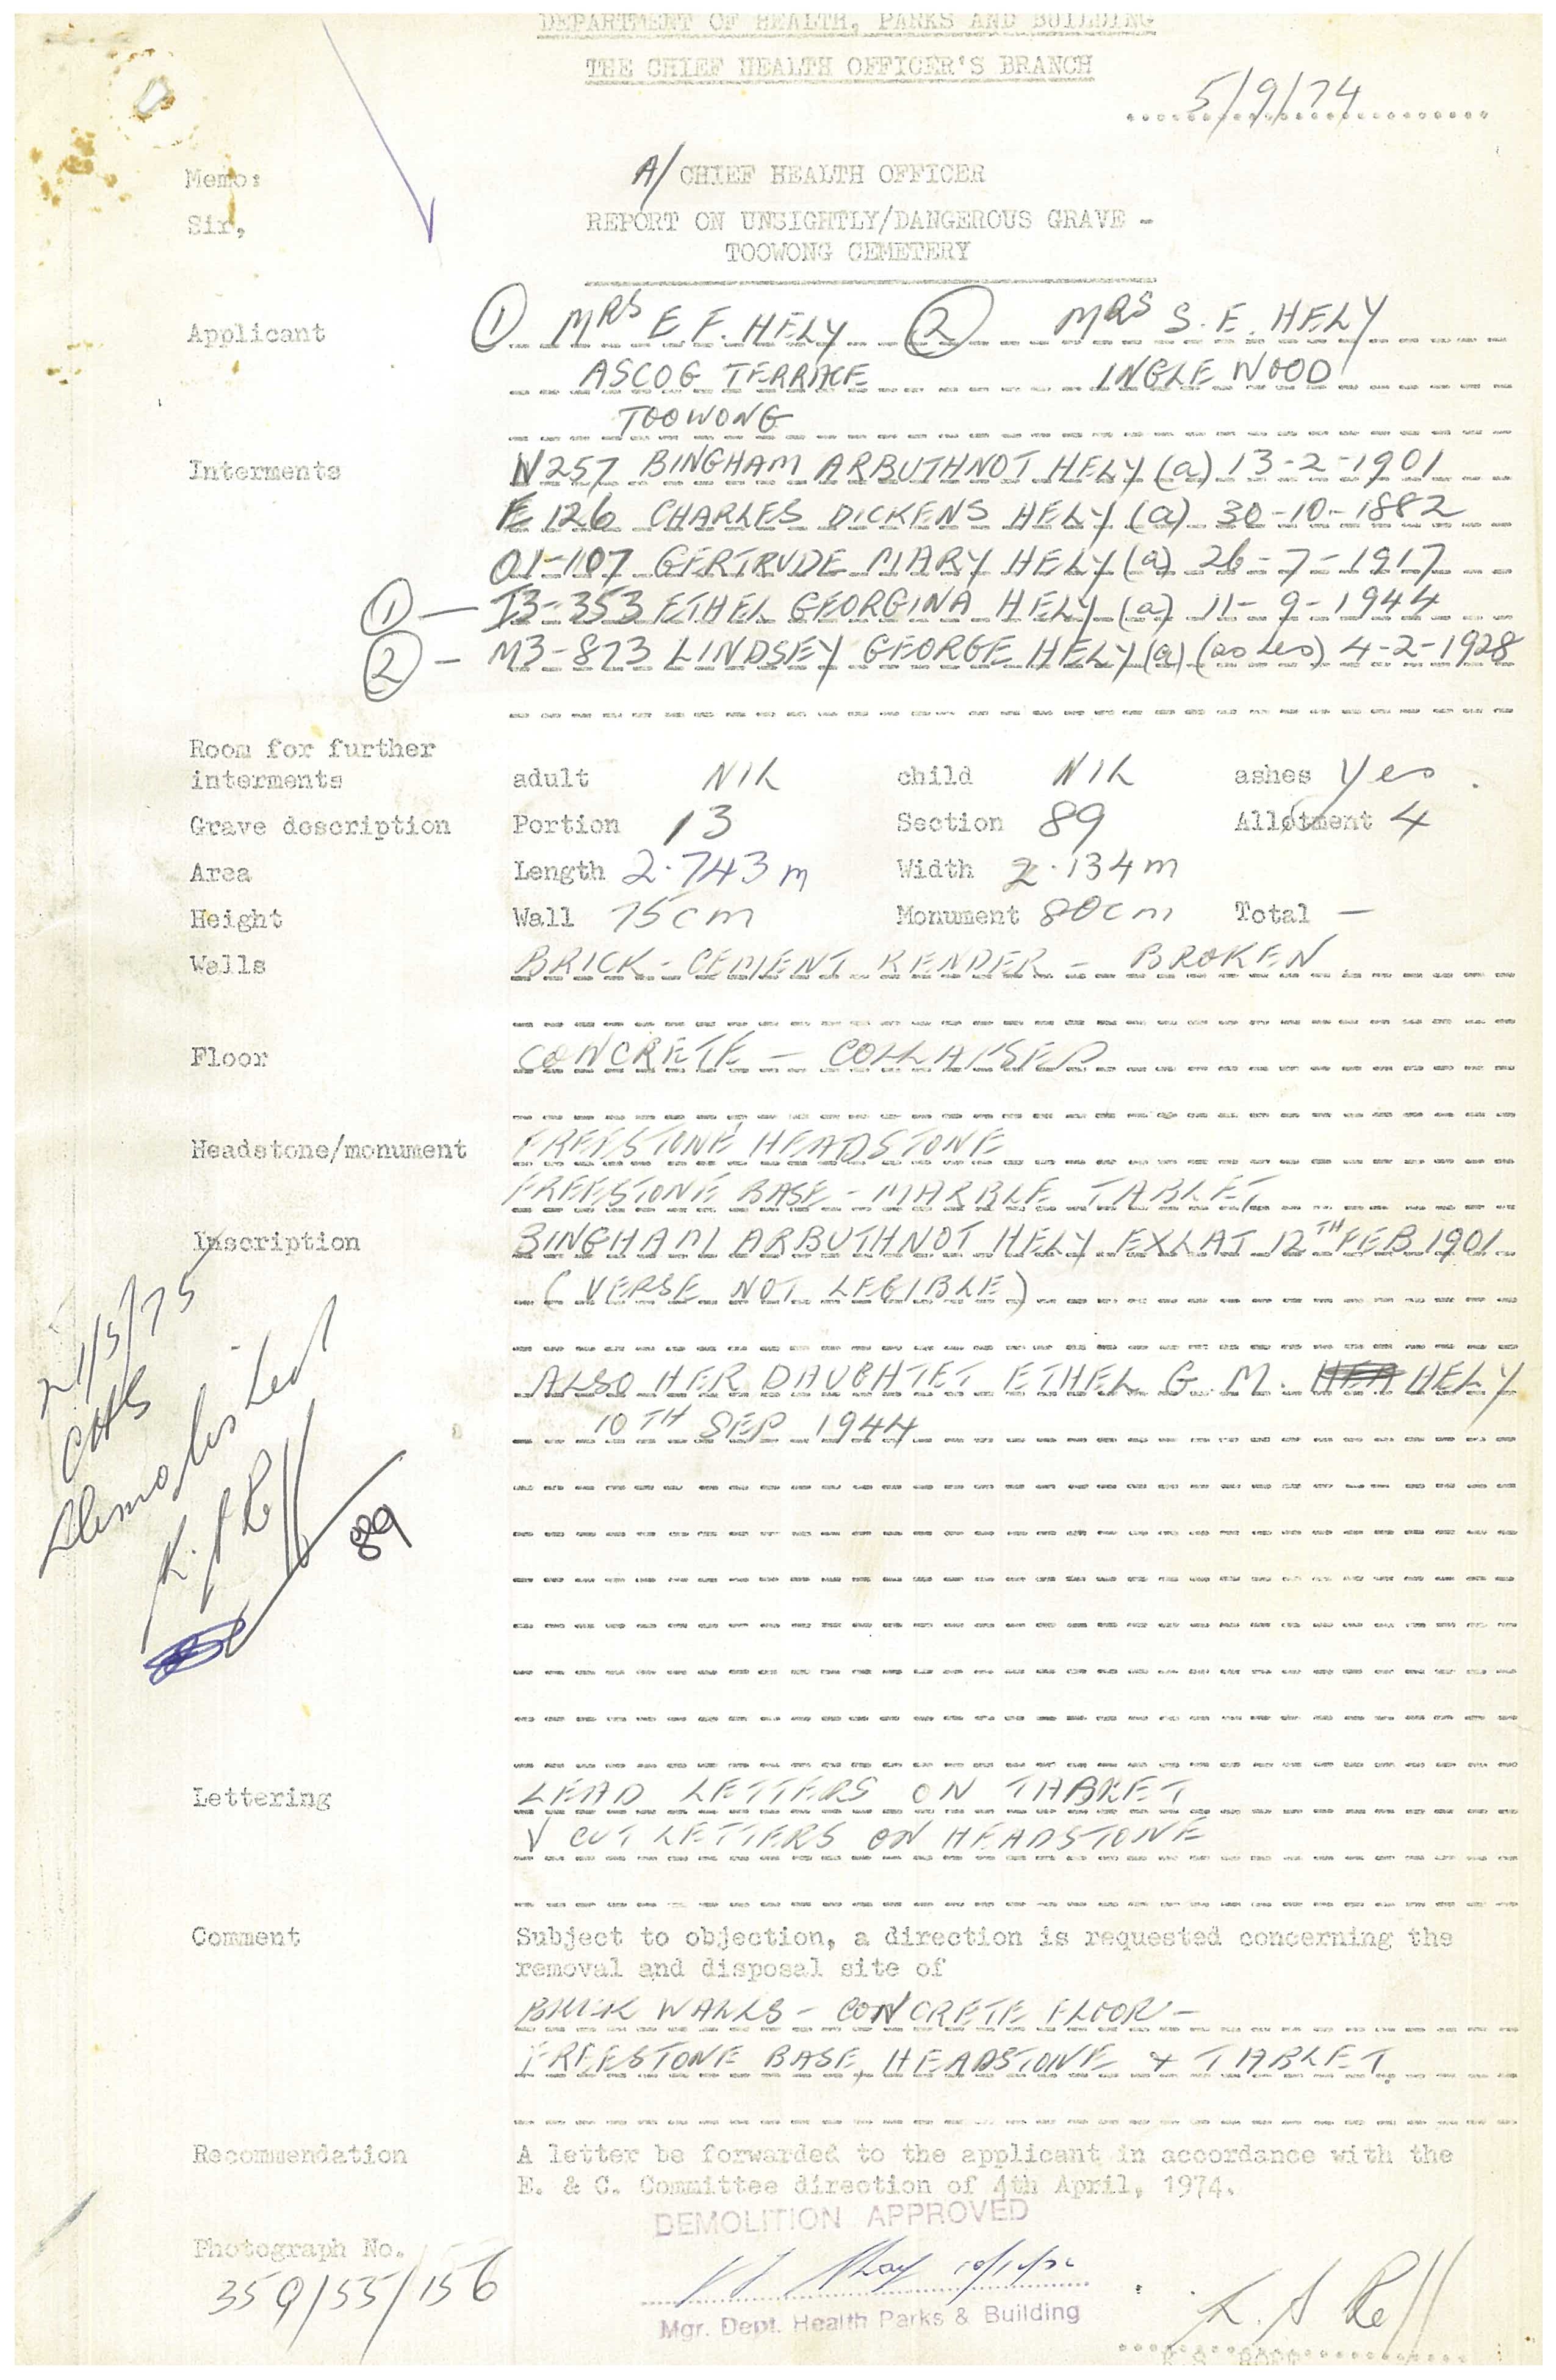 DEPARTMENT OF HEALTH, PARKS AND BUILDING
THE CHIEF HEALTH OFFICER'S BRANCH
5/9/74
Memo: A/ CHIEF HEALTH OFFICER
Sir, REPORT ON UNSIGHTLY/DANGEROUS GRAVE -
TOOWONG CEMETERY
Applicant ① MRS E F. HELY ② MRS S. E. HELY
ASCOG TERRACE INGLEWOOD
TOOWONG
Interments N257 BINGHAM ARBUTHNOT HELY (a) 13-2-1901
E126 CHARLES DICKENS HELY (a) 30-10-1882
01-107 GERTRUDE MARY HELY (a) 26-7-1917
① - J3-353 ETHEL GEORGINA HELY (a) 11-9-1944
② - M3-873 LINDSEY GEORGE HELY (a) (ashes) 4-2-1928
Room for further
interments adult NIL child NIL ashes Yes.
Grave description Portion 13 Section 89 Allotment 4
Area Length 2.743m Width 2.134m
Height Wall 75cm Monument 80cm Total -
Walls BRICK - CEMENT RENDER - BROKEN
Floor CONCRETE - COLLAPSED
Headstone/monument FREESTONE HEADSTONE
FREESTONE BASE - MARBLE TABLET
Inscription BINGHAM ARBUTHNOT HELY EXLAT 12TH FEB 1901
(VERSE NOT LEGIBLE)
ALSO HER DAUGHTET ETHEL G. M. HELY
10TH SEP 1944
21/5/75
Demolished
89
Lettering LEAD LETTERS ON TABLET
V CUT LETTERS ON HEADSTONE
Comment Subject to objection, a direction is requested concerning the
removal and disposal site of
BRICK WALLS - CONCRETE FLOOR -
FREESTONE BASE, HEADSTONE & TABLET.
Recommendation A letter be forwarded to the applicant in accordance with the
E. & C. Committee direction of 4th April, 1974.
DEMOLITION APPROVED
Photograph No.
359/55/156
Mgr. Dept. Health Parks & Building